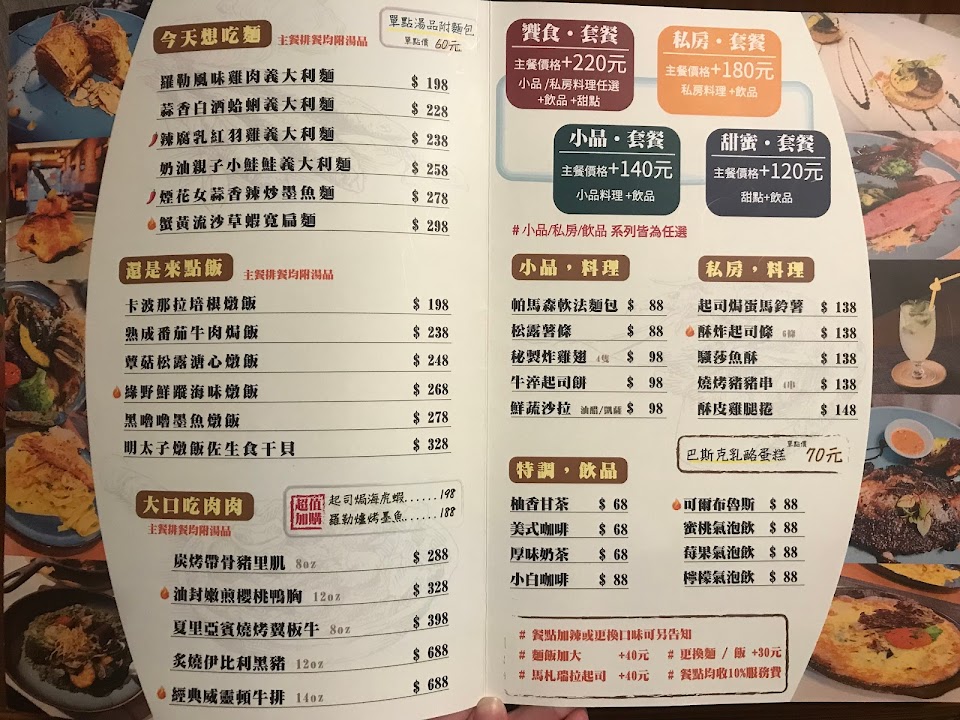 今天想吃麵 主餐排餐均附湯品
單點湯品附麵包
單點價 60元
羅勒風味雞肉義大利麵 $ 198
蒜香白酒蛤蜊義大利麵 $ 228
辣腐乳紅羽雞義大利麵 $ 238
奶油親子小鮭鮭義大利麵 $ 258
煙花女蒜香辣炒墨魚麵 $ 278
蟹黃流沙草蝦寬扁麵 $ 298
還是來點飯 主餐排餐均附湯品
卡波那拉培根燉飯 $ 198
熟成番茄牛肉焗飯 $ 238
蕈菇松露溏心燉飯 $ 248
綠野鮮蹤海味燉飯 $ 268
黑嚕嚕墨魚燉飯 $ 278
明太子燉飯佐生食干貝 $ 328
大口吃肉肉
主餐排餐均附湯品
超值加購
起司焗海虎蝦......198
羅勒爐烤墨魚......188
炭烤帶骨豬里肌 8oz $ 288
油封嫩煎櫻桃鴨胸 12oz $ 328
夏里亞賓燒烤翼板牛 8oz $ 398
炙燒伊比利黑豬 12oz $ 688
經典威靈頓牛排 14oz $ 688
饗食・套餐
主餐價格+220元
小品/私房料理任選
+飲品+甜點
私房・套餐
主餐價格+180元
私房料理+飲品
小品・套餐
主餐價格+140元
小品料理+飲品
甜蜜・套餐
主餐價格+120元
甜點+飲品
# 小品/私房/飲品 系列皆為任選
小品，料理
帕馬森軟法麵包 $ 88
松露薯條 $ 88
秘製炸雞翅 4隻 $ 98
牛淬起司餅 $ 98
鮮蔬沙拉 油醋/凱薩 $ 98
私房，料理
起司焗蛋馬鈴薯 $ 138
酥炸起司條 6條 $ 138
騷莎魚酥 $ 138
燒烤豬豬串 4串 $ 138
酥皮雞腿捲 $ 148
巴斯克乳酪蛋糕 單點價 70元
特調，飲品
柚香甘茶 $ 68
美式咖啡 $ 68
厚味奶茶 $ 68
小白咖啡 $ 88
可爾布魯斯 $ 88
蜜桃氣泡飲 $ 88
莓果氣泡飲 $ 88
檸檬氣泡飲 $ 88
# 餐點加辣或更換口味可另告知
# 麵飯加大 +40元 # 更換麵 / 飯 +30元
# 馬札瑞拉起司 +40元 # 餐點均收10%服務費